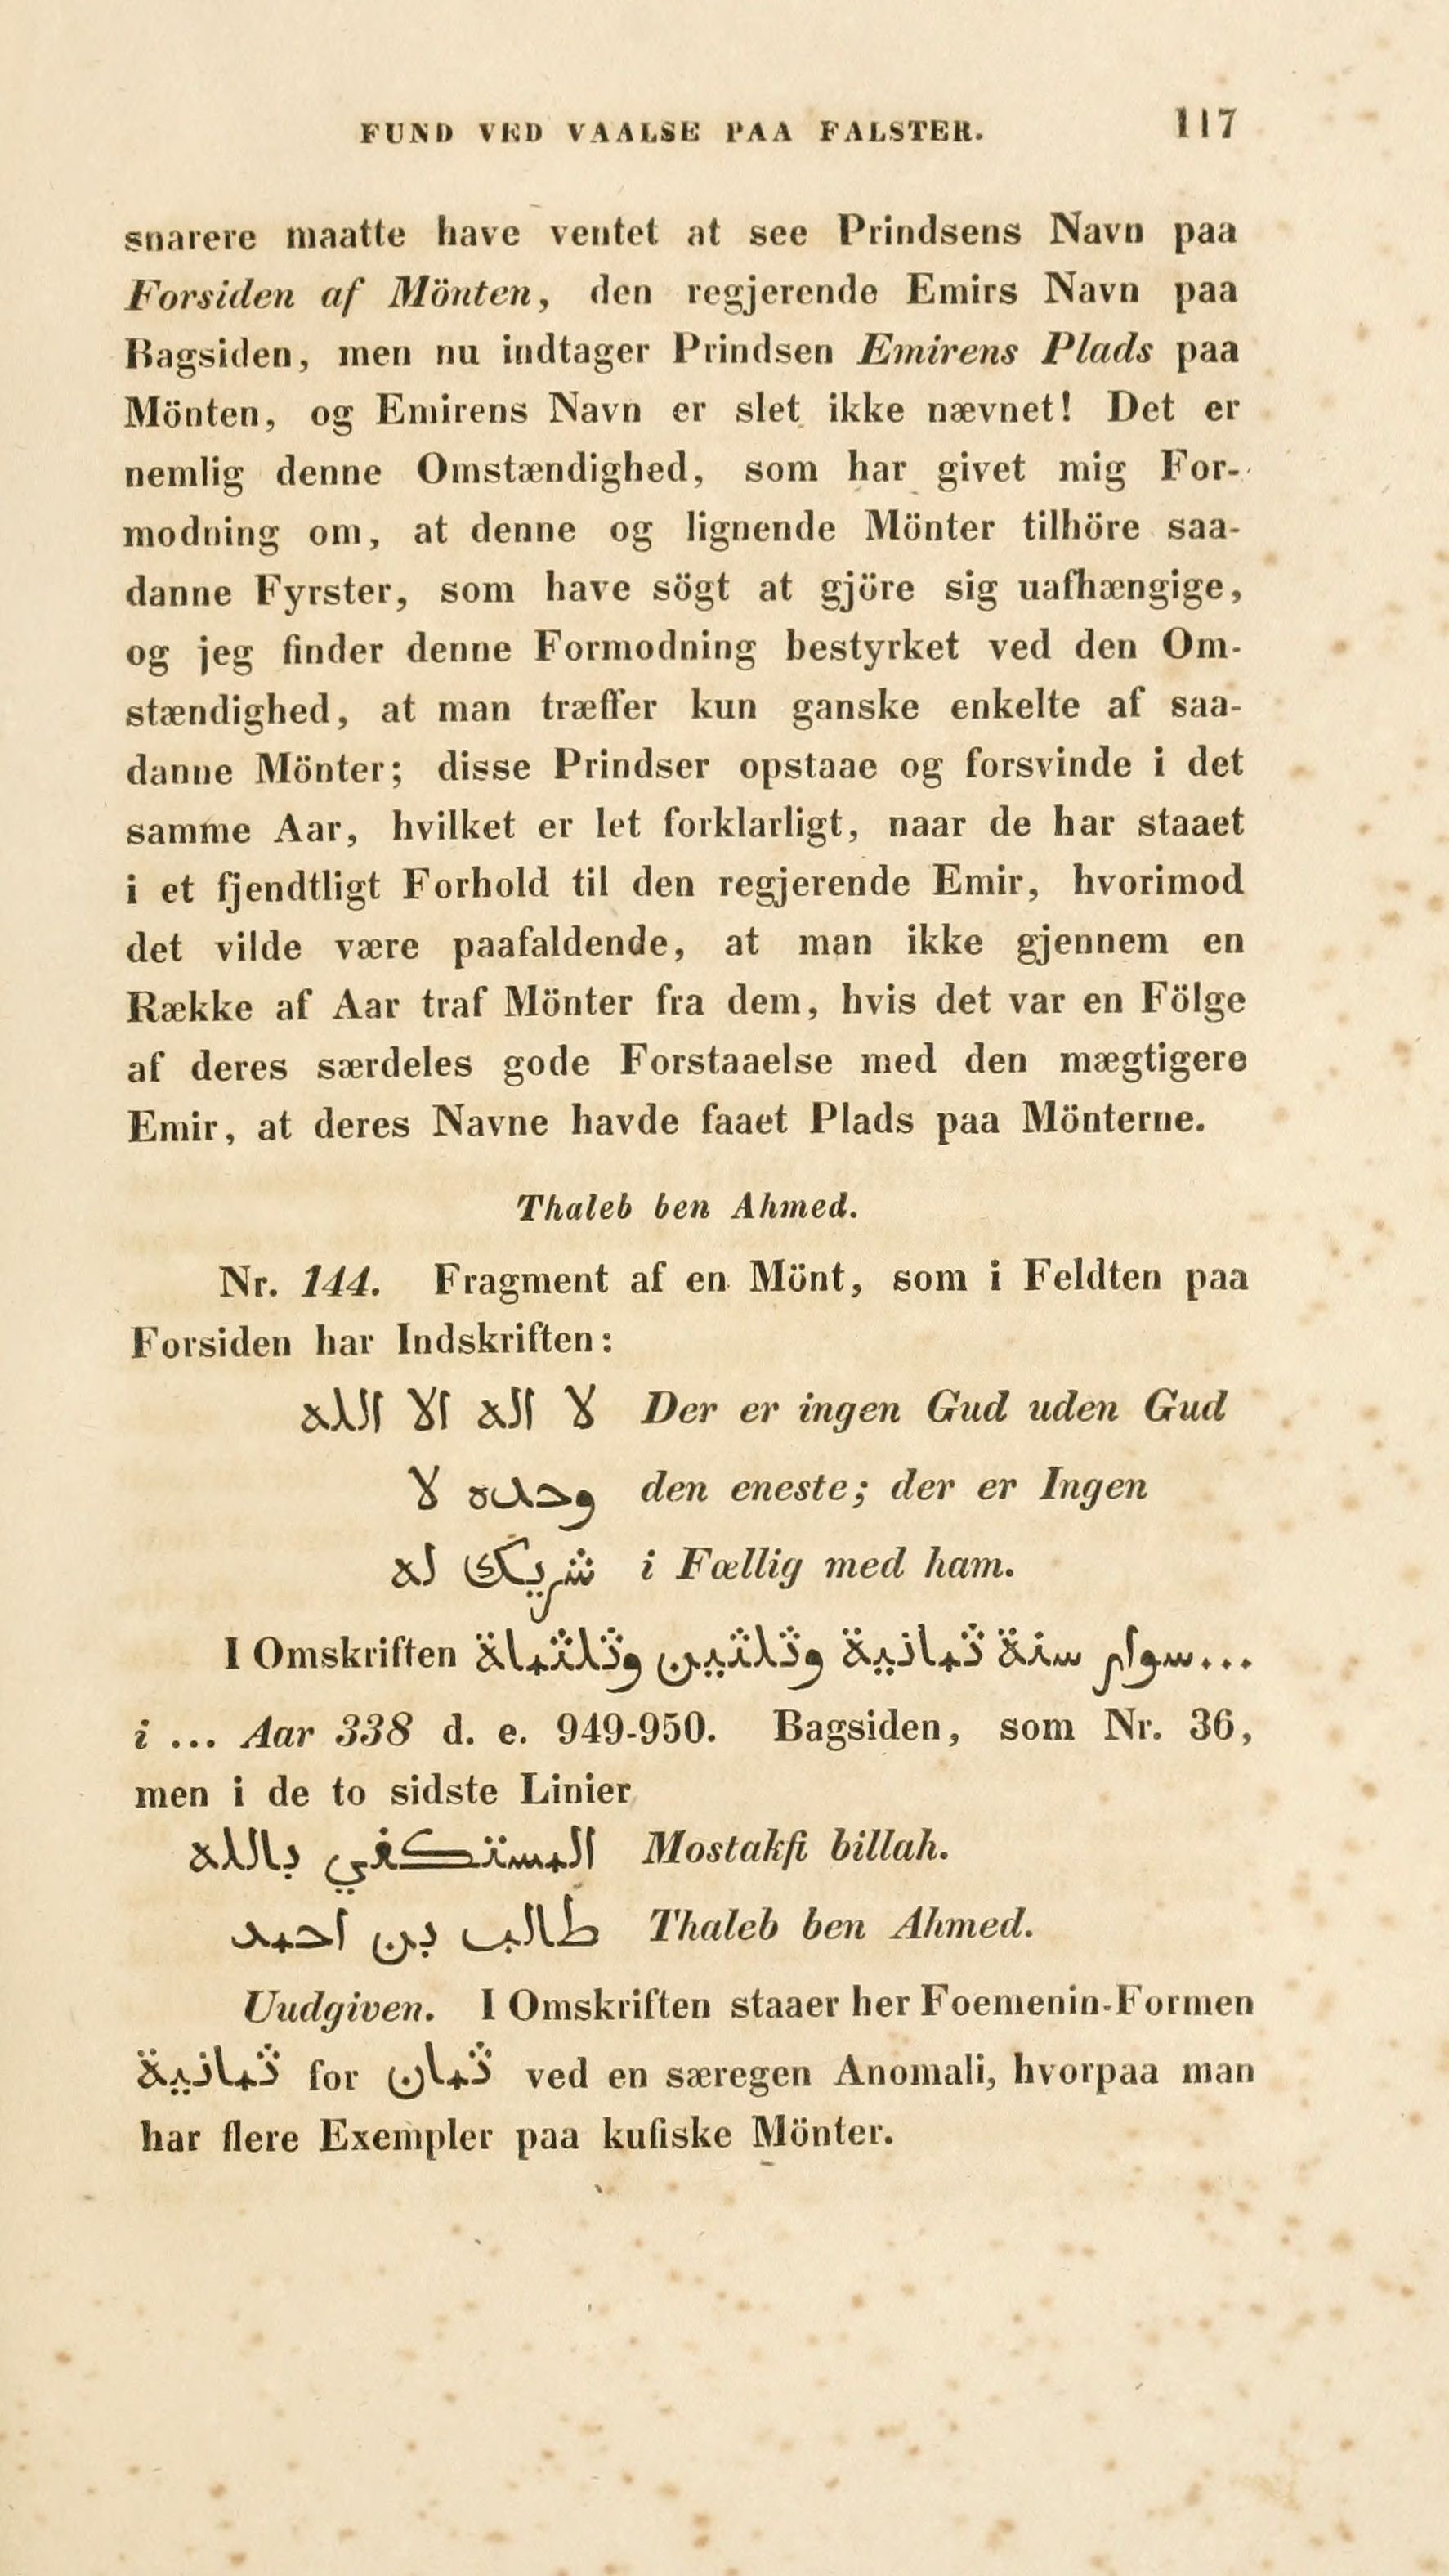 FUND VED VAALSE PAA FALSTER. 117
snarere maatte have ventet at see Prindsens Navn paa
Forsiden af Mönten, den regjerende Emirs Navn paa
Bagsiden, men nu indtager Prindsen Emirens Plads paa
Mönten, og Emirens Navn er slet ikke nævnet! Det er
nemlig denne Omstændighed, som har givet mig For-
modning om, at denne og lignende Mönter tilhöre saa-
danne Fyrster, som have sögt at gjöre sig uafhængige,
og jeg finder denne Formodning bestyrket ved den Om-
stændighed, at man træffer kun ganske enkelte af saa-
danne Mönter; disse Prindser opstaae og forsvinde i det
samme Aar, hvilket er let forklarligt, naar de har staaet
i et fjendtligt Forhold til den regjerende Emir, hvorimod
det vilde være paafaldende, at man ikke gjennem en
Række af Aar traf Mönter fra dem, hvis det var en Fölge
af deres særdeles gode Forstaaelse med den mægtigere
Emir, at deres Navne havde faaet Plads paa Mönterne.
Thaleb ben Ahmed.
Nr. 144. Fragment af en Mönt, som i Feldten paa
Forsiden har Indskriften:
لا اله الا الله Der er ingen Gud uden Gud
وحده لا den eneste; der er Ingen
شريك له i Fællig med ham.
I Omskriften ...سوام سنة ثمانية وثلثين وثلثماة
i ... Aar 338 d. e. 949-950. Bagsiden, som Nr. 36,
men i de to sidste Linier
المستكفي بالله Mostakfi billah.
طالب بن احمد Thaleb ben Ahmed.
Uudgiven. I Omskriften staaer her Foemenin-Formen
ثمانية for ثمان ved en særegen Anomali, hvorpaa man
har flere Exempler paa kufiske Mönter.